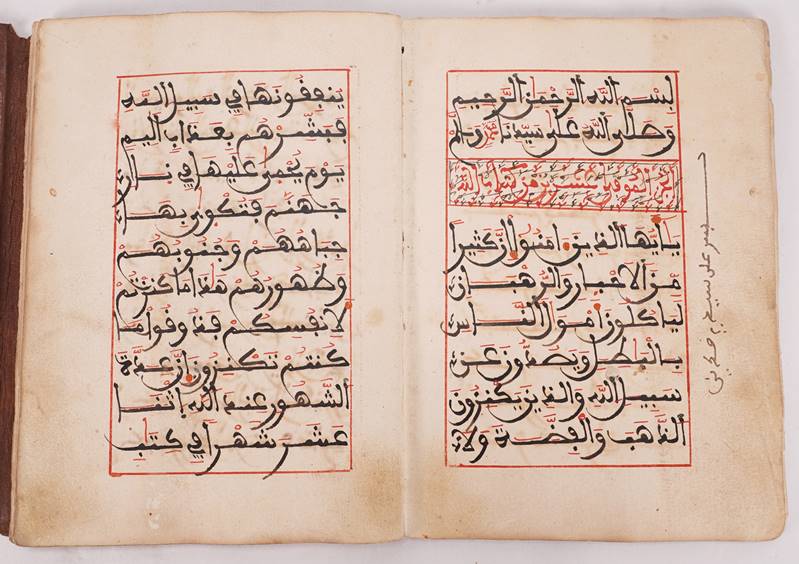 بسم الله الرحمن الرحيم
وصلى الله على سيدنا محمد وآله
يأيها الذين ءامنوا إن كثيرا
من الأحبار والرهبان
لياكلون أموال الناس
بالبطل ويصدون عن
سبيل الله والذين يكنزون
الذهب والفضة ولا
ينفقونها في سبيل الله
فبشرهم بعذاب أليم
يوم يحمى عليها في نار
جهنم فتكوى بها
جباههم وجنوبهم
وظهورهم هذا ما كنزتم
لأنفسكم فذوقوا ما
كنتم تكنزون إن عدة
الشهور عند الله اثنا
عشر شهرا في كتب